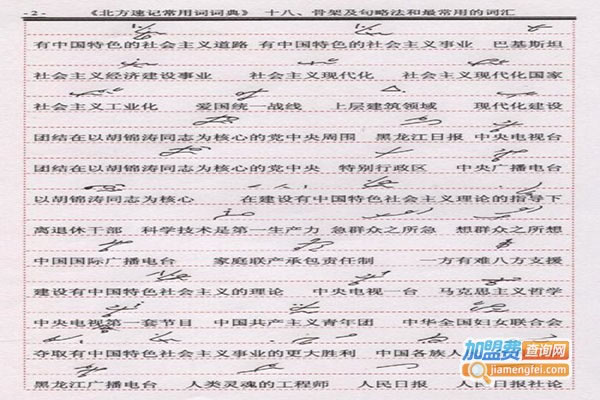 - 2 - 《北方速记常用词词典》 十八、骨架及句略法和最常用的词汇
有中国特色的社会主义道路 有中国特色的社会主义事业 巴基斯坦
社会主义经济建设事业 社会主义现代化 社会主义现代化国家
社会主义工业化 爱国统一战线 上层建筑领域 现代化建设
团结在以胡锦涛同志为核心的党中央周围 黑龙江日报 中央电视台
团结在以胡锦涛同志为核心的党中央 特别行政区 中央广播电台
以胡锦涛同志为核心 在建设有中国特色社会主义理论的指导下
离退休干部 科学技术是第一生产力 急群众之所急 想群众之所想
中国国际广播电台 家庭联产承包责任制 一方有难八方支援
建设有中国特色社会主义的理论 中央电视一台 马克思主义哲学
中央电视第一套节目 中国共产主义青年团 中华全国妇女联合会
夺取有中国特色社会主义事业的更大胜利 中国各族人
黑龙江广播电台 人类灵魂的工程师 人民日报 人民日报社论
加盟费查询网
jiamengfei.com